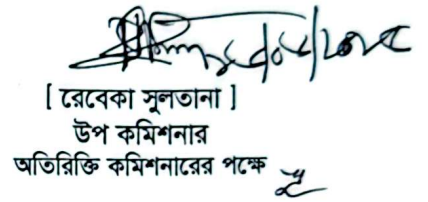 [ রেবেকা সুলতানা ]
উপ কমিশনার
অতিরিক্তি কমিশনারের পক্ষে